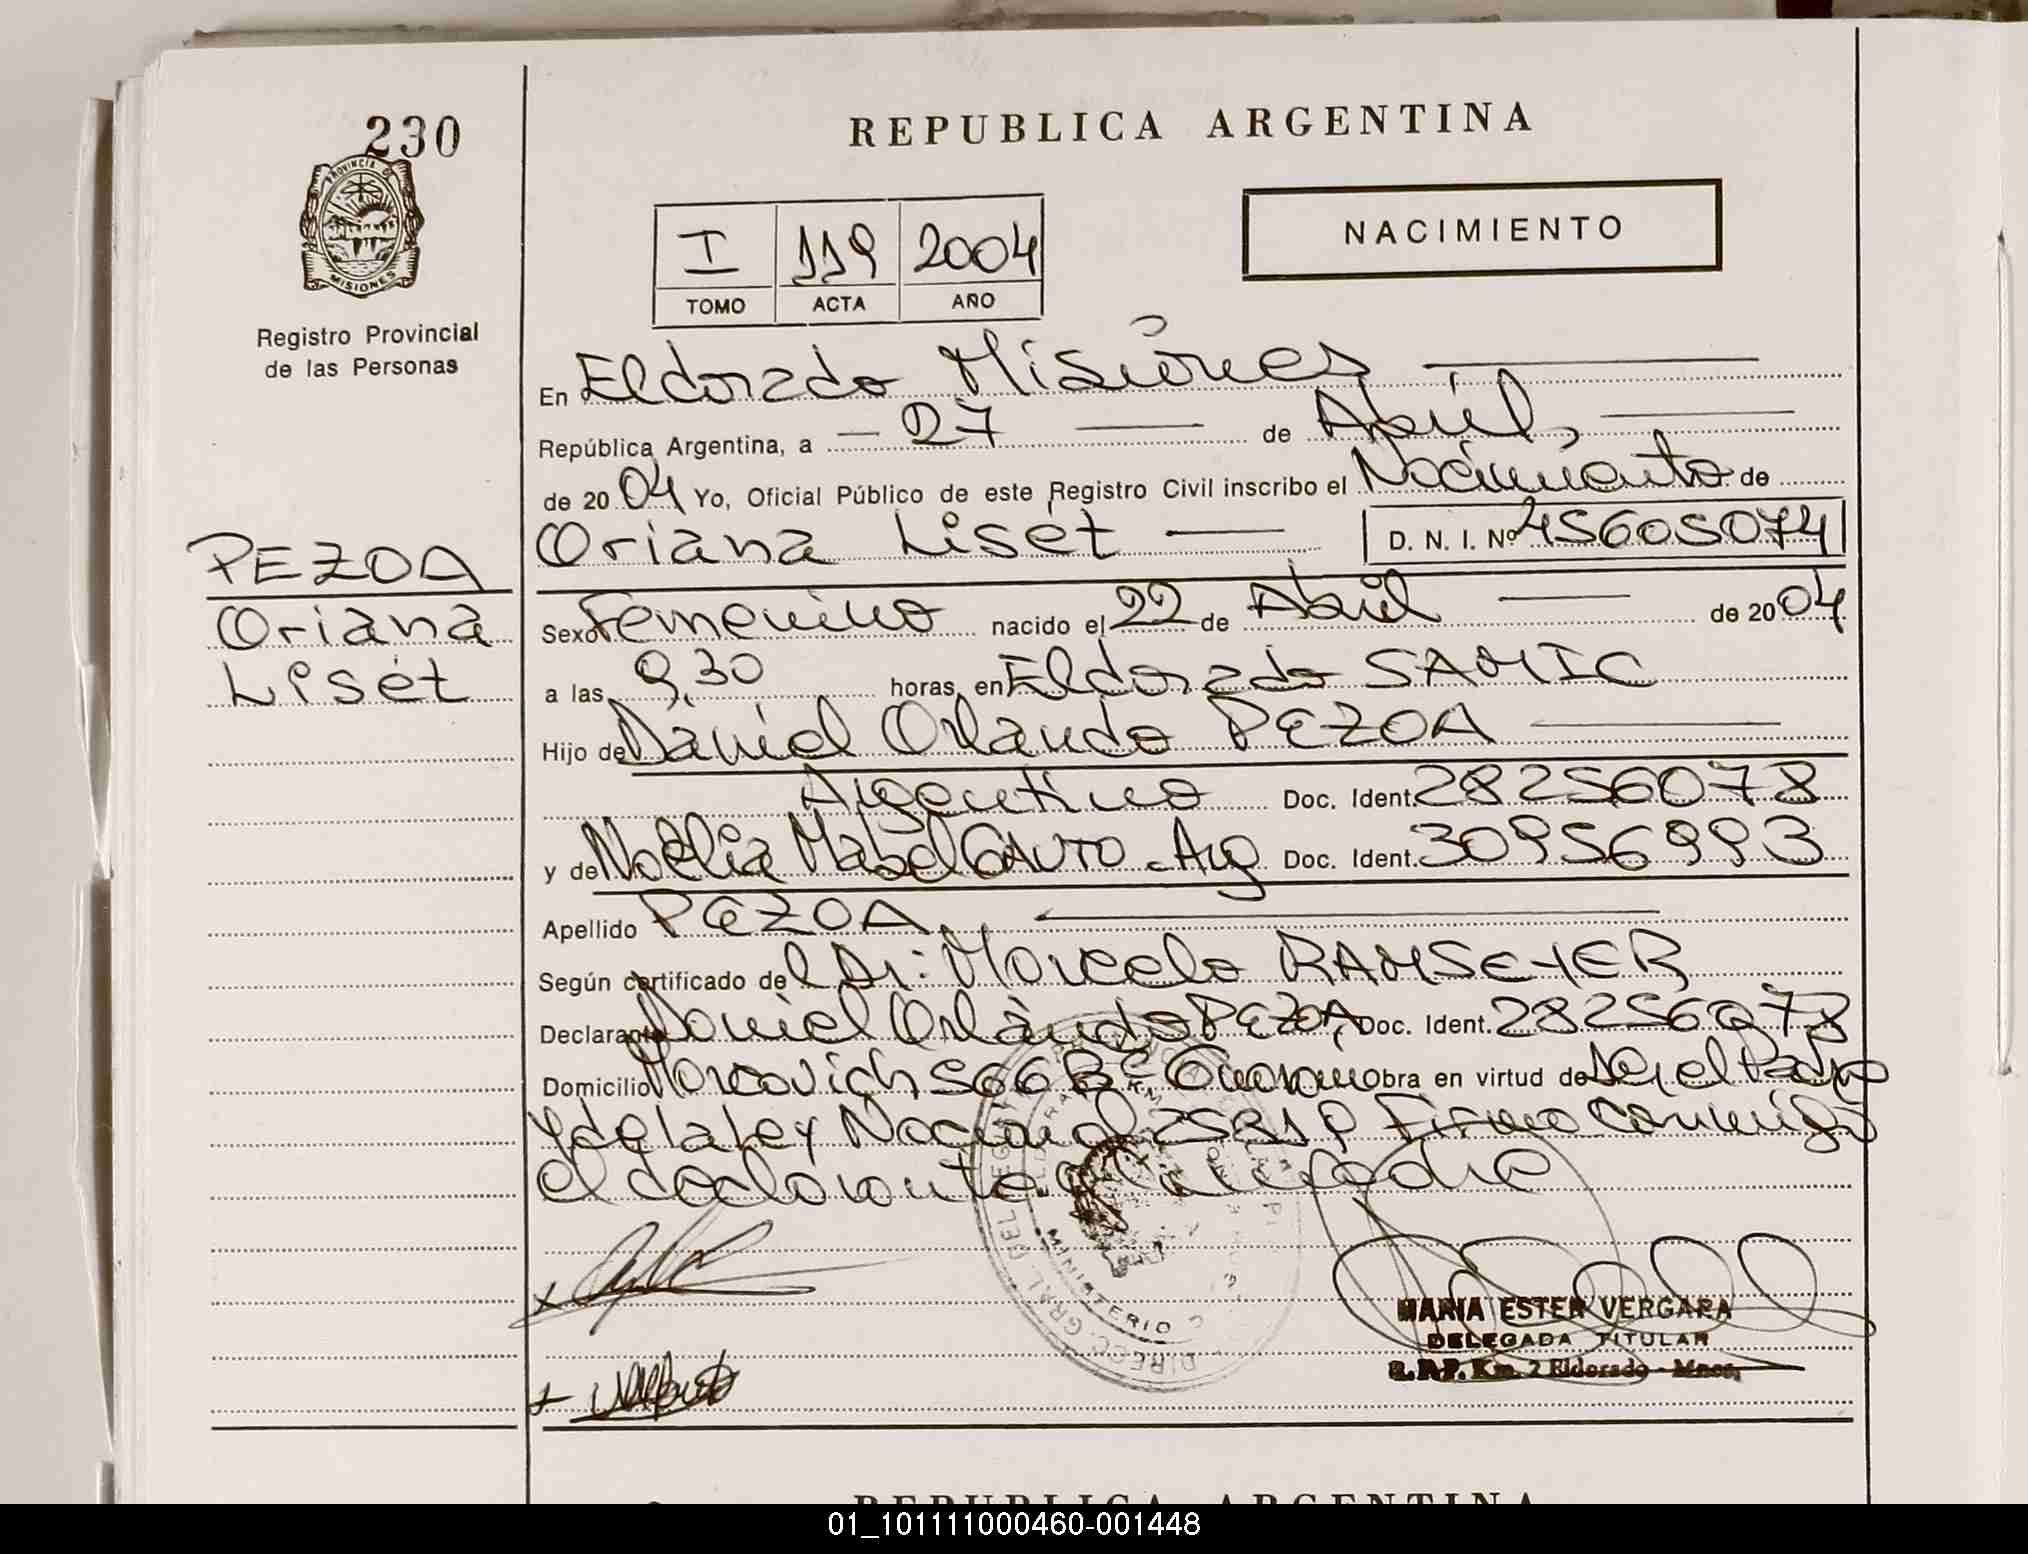 230
REPUBLICA ARGENTINA
PROVINCIA DE
MISIONES
Registro Provincial
de las Personas
I 119 2004
TOMO ACTA AÑO
NACIMIENTO
En Eldorado Misiones
República Argentina, a 27 de Abril,
de 2004 Yo, Oficial Público de este Registro Civil inscribo el Nacimiento de
Oriana Liset D. N. I. Nº 45605074
PEZOA
Oriana
Liset
Sexo Femenino nacido el 22 de Abril de 2004
a las 9,30 horas, en Eldorado SAMIC
Hijo de Daniel Orlando PEZOA
Argentino Doc. Ident. 28256078
y de Noelia Mabel GAUTO - Arg Doc. Ident. 30956993
Apellido PEZOA
Según certificado del Dr: Marcelo RAMSEYER
Declarante Daniel Orlando PEZOA, Doc. Ident. 28256078
Domicilio Marcovich 566 Bº Guarani Obra en virtud de Ser el Padre
y de la Ley Nacional 25819 Firma conmigo
el declarante y la madre
DIRECC. GRAL. DEL
MINISTERIO
MARIA ESTER VERGARA
DELEGADA TITULAR
R.P.P. Km. 2 Eldorado - Mnes.
REPUBLICA ARGENTINA
01_101111000460-001448